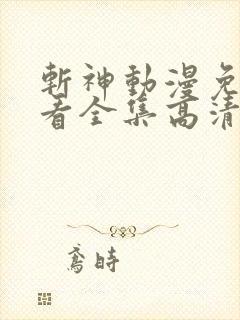 斬神動漫免
看全集高清
鳶時